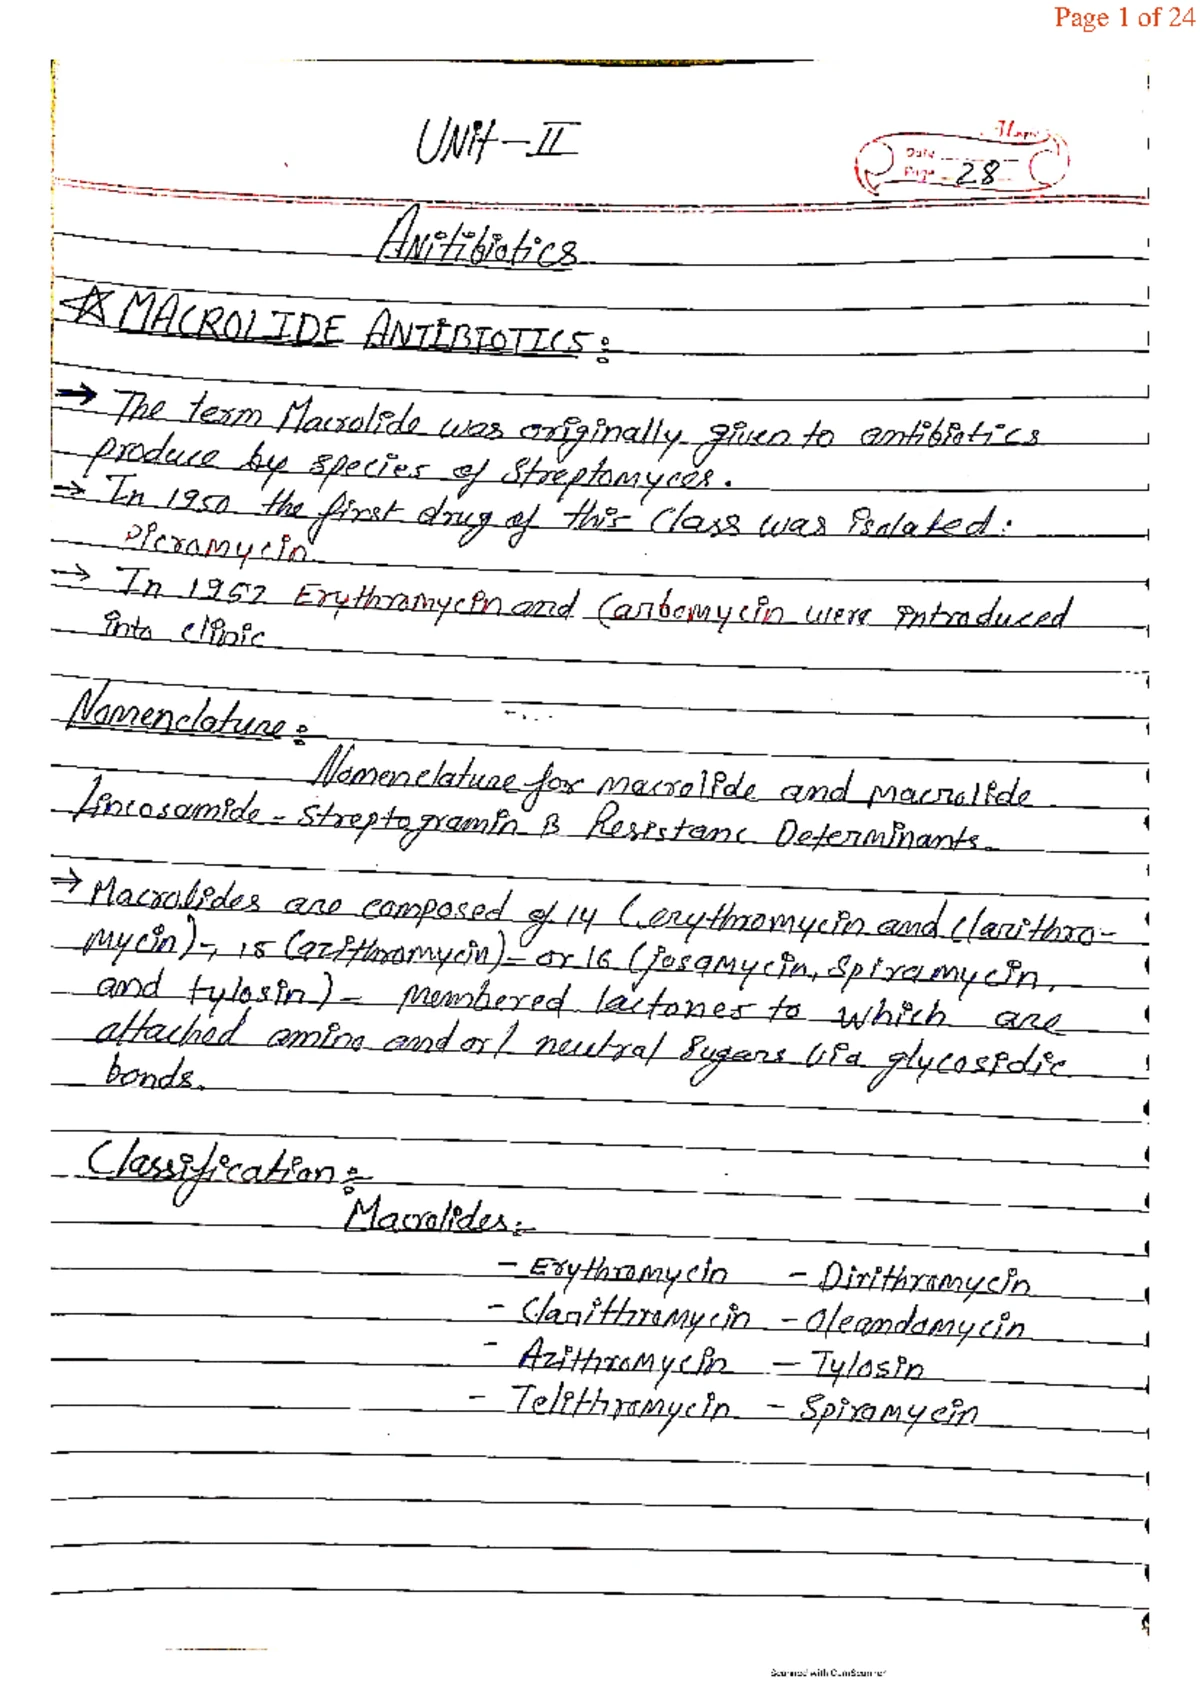 Page 1 of 24
UNit-II
Date
Page 28
Anitibiotics
☆ MACROLIDE ANTIBIOTICS:
→ The term Macrolide was originally given to antibiotics
produce by species of Streptomyces.
→ In 1950 the first drug of this class was isolated:
Picramycin
→ In 1952 Erythromycin and Carbomycin were introduced
into clinic
Nomenclature:
Nomenclature for macrolide and macrolide
Lincosamide - Streptogramin B Resistanc Determinants.
→ Macrolides are composed of 14 (erythromycin and clarithro-
mycin)-, 15 (azithromycin)- or 16 (josamycin, spiramycin,
and tylosin)- membered lactones to which are
attached amino and or/ neutral sugars via glycosidic
bonds.
Classification:
Macrolides:-
- Erythromycin - Dirithramycin
- Clarithromycin - Oleamdomycin
- Azithromycin - Tylosin
- Telithromycin - Spiramycin
Scanned with CamScanner